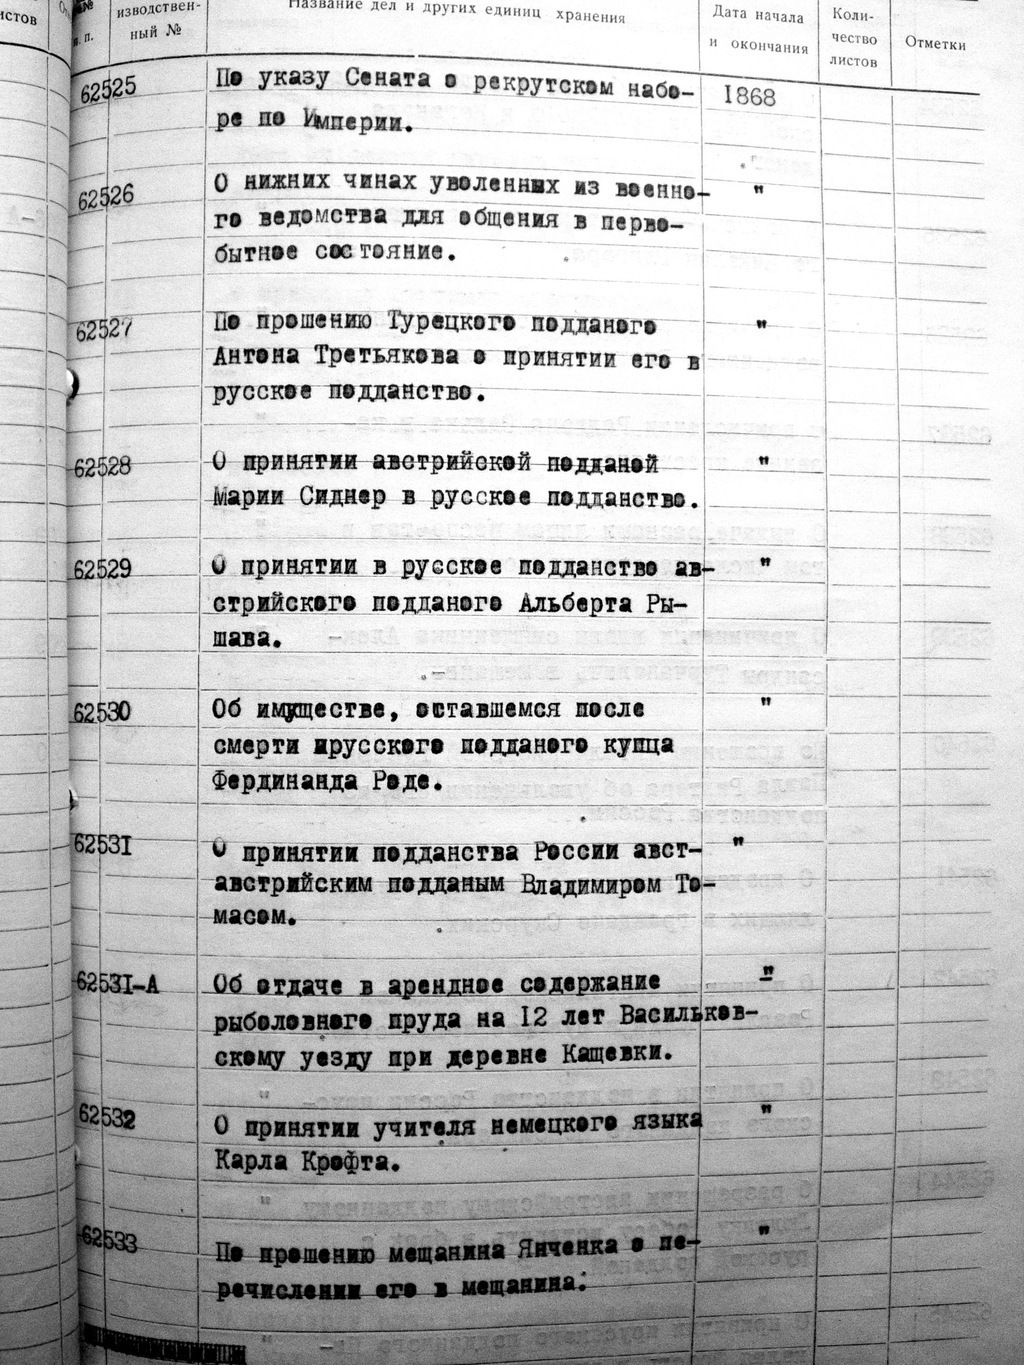 истов
№№
п. п.
изводствен-
ный №
Название дел и других единиц хранения
Дата начала
и окончания
Коли-
чество
листов
Отметки
62525
По указу Сената о рекрутском набо-
ре по Империи.
1868
62526
О нижних чинах уволенных из военно-
го ведомства для общения в перво-
бытное состояние.
"
62527
По прошению Турецкого подданого
Антона Третьякова о принятии его в
русское подданство.
"
62528
О принятии австрийской подданой
Марии Сиднер в русское подданство.
"
62529
О принятии в русское подданство ав-
стрийского подданого Альберта Ры-
шава.
"
62530
Об имуществе, оставшемся после
смерти прусского подданого купца
Фердинанда Роде.
"
62531
О принятии подданства России авст-
австрийским подданым Владимиром То-
масом.
"
62531-А
Об отдаче в арендное содержание
рыболовного пруда на 12 лет Васильков-
скому уезду при деревне Кащевки.
"
62532
О принятии учителя немецкого языка
Карла Крофта.
"
62533
По прошению мещанина Янченка о пе-
речислении его в мещанина.
"